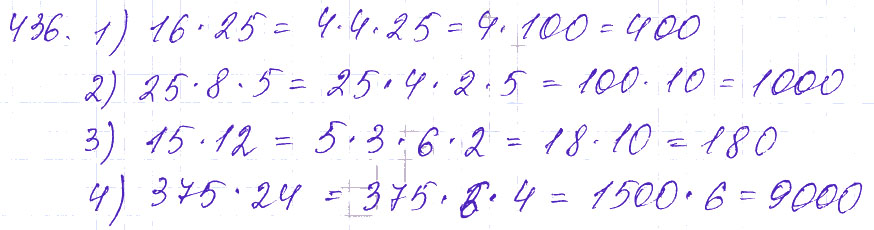 436. 1) 16 · 25 = 4 · 4 · 25 = 4 · 100 = 400
2) 25 · 8 · 5 = 25 · 4 · 2 · 5 = 100 · 10 = 1000
3) 15 · 12 = 5 · 3 · 6 · 2 = 18 · 10 = 180
4) 375 · 24 = 375 · 6 · 4 = 1500 · 6 = 9000